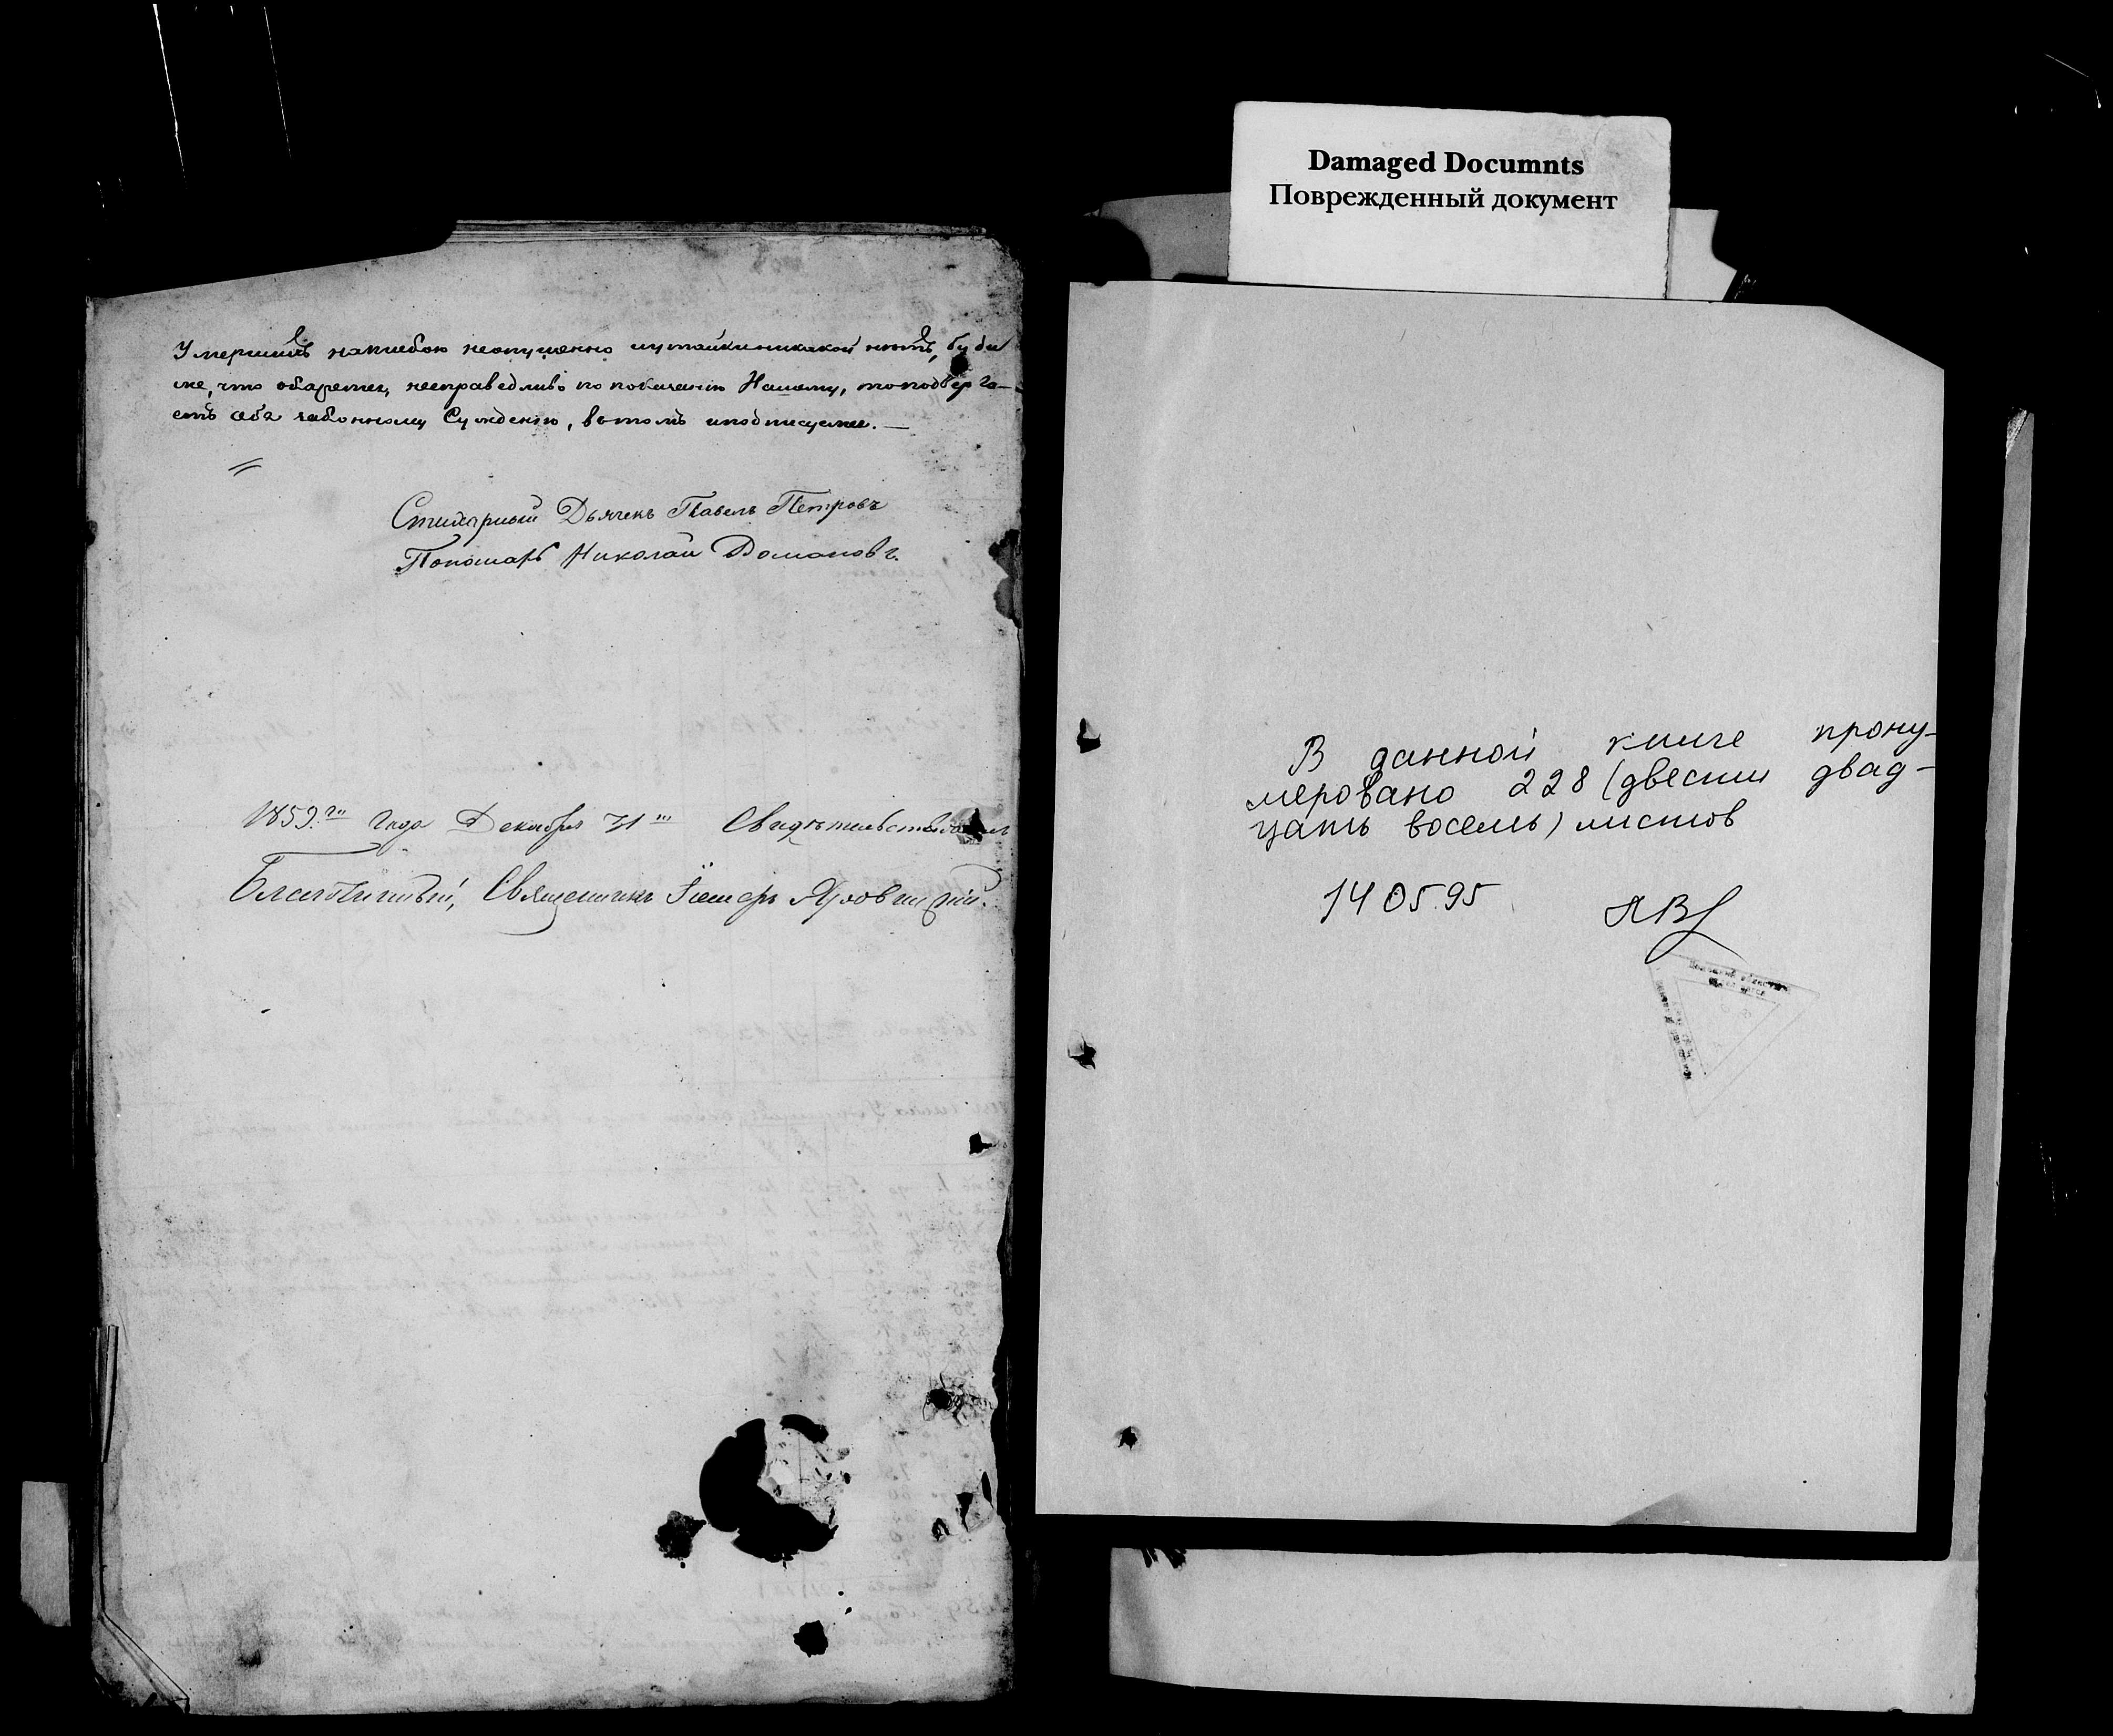 Умершихъ написбою неопущенно иутайкиникакой нѣтъ, буде
же, что обаретец, несправедливо по показанію Нашему, топодверга-
етъ себя законному Сужденію, вътомъ иподписуемсе.—
Стихарный Дьячекъ Павелъ Петровъ
Пономарь Николай Домановъ.
1859.го Года Декабря 31го Свидѣтельствовалъ
Благочинный, Священникъ
Damaged Documnts
Поврежденный документ
В данной книге прону-
меровано 228 (двести двад-
цать восемь) листов
14 05.95